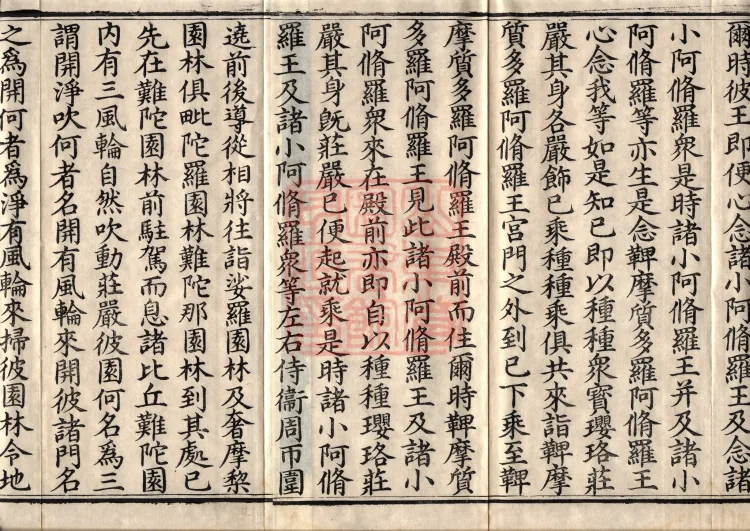 爾時彼王即便心念諸小阿脩羅王及念諸
小阿脩羅衆是時諸小阿脩羅王并及諸小
阿脩羅等亦生是念鞞摩質多羅阿脩羅王
心念我等如是知已即以種種衆寶瓔珞莊
嚴其身各嚴飾已乘種種乘俱共來詣鞞摩
質多羅阿脩羅王宮門之外到已下乘至鞞
摩質多羅阿脩羅王殿前而住爾時鞞摩質
多羅阿脩羅王見此諸小阿脩羅王及諸小
阿脩羅衆來在殿前亦即自以種種瓔珞莊
嚴其身既莊嚴已便起就乘是時諸小阿脩
羅王及諸小阿脩羅衆等左右侍衞周帀圍
遶前後導從相將往詣娑羅園林及奢摩梨
園林俱毗陀羅園林難陀那園林到其處已
先在難陀園林前駐駕而息諸比丘難陀園
内有三風輪自然吹動莊嚴彼園何名為三
謂開淨吹何者名開有風輪來開彼諸門名
之為開何者為淨有風輪來掃彼園林令地